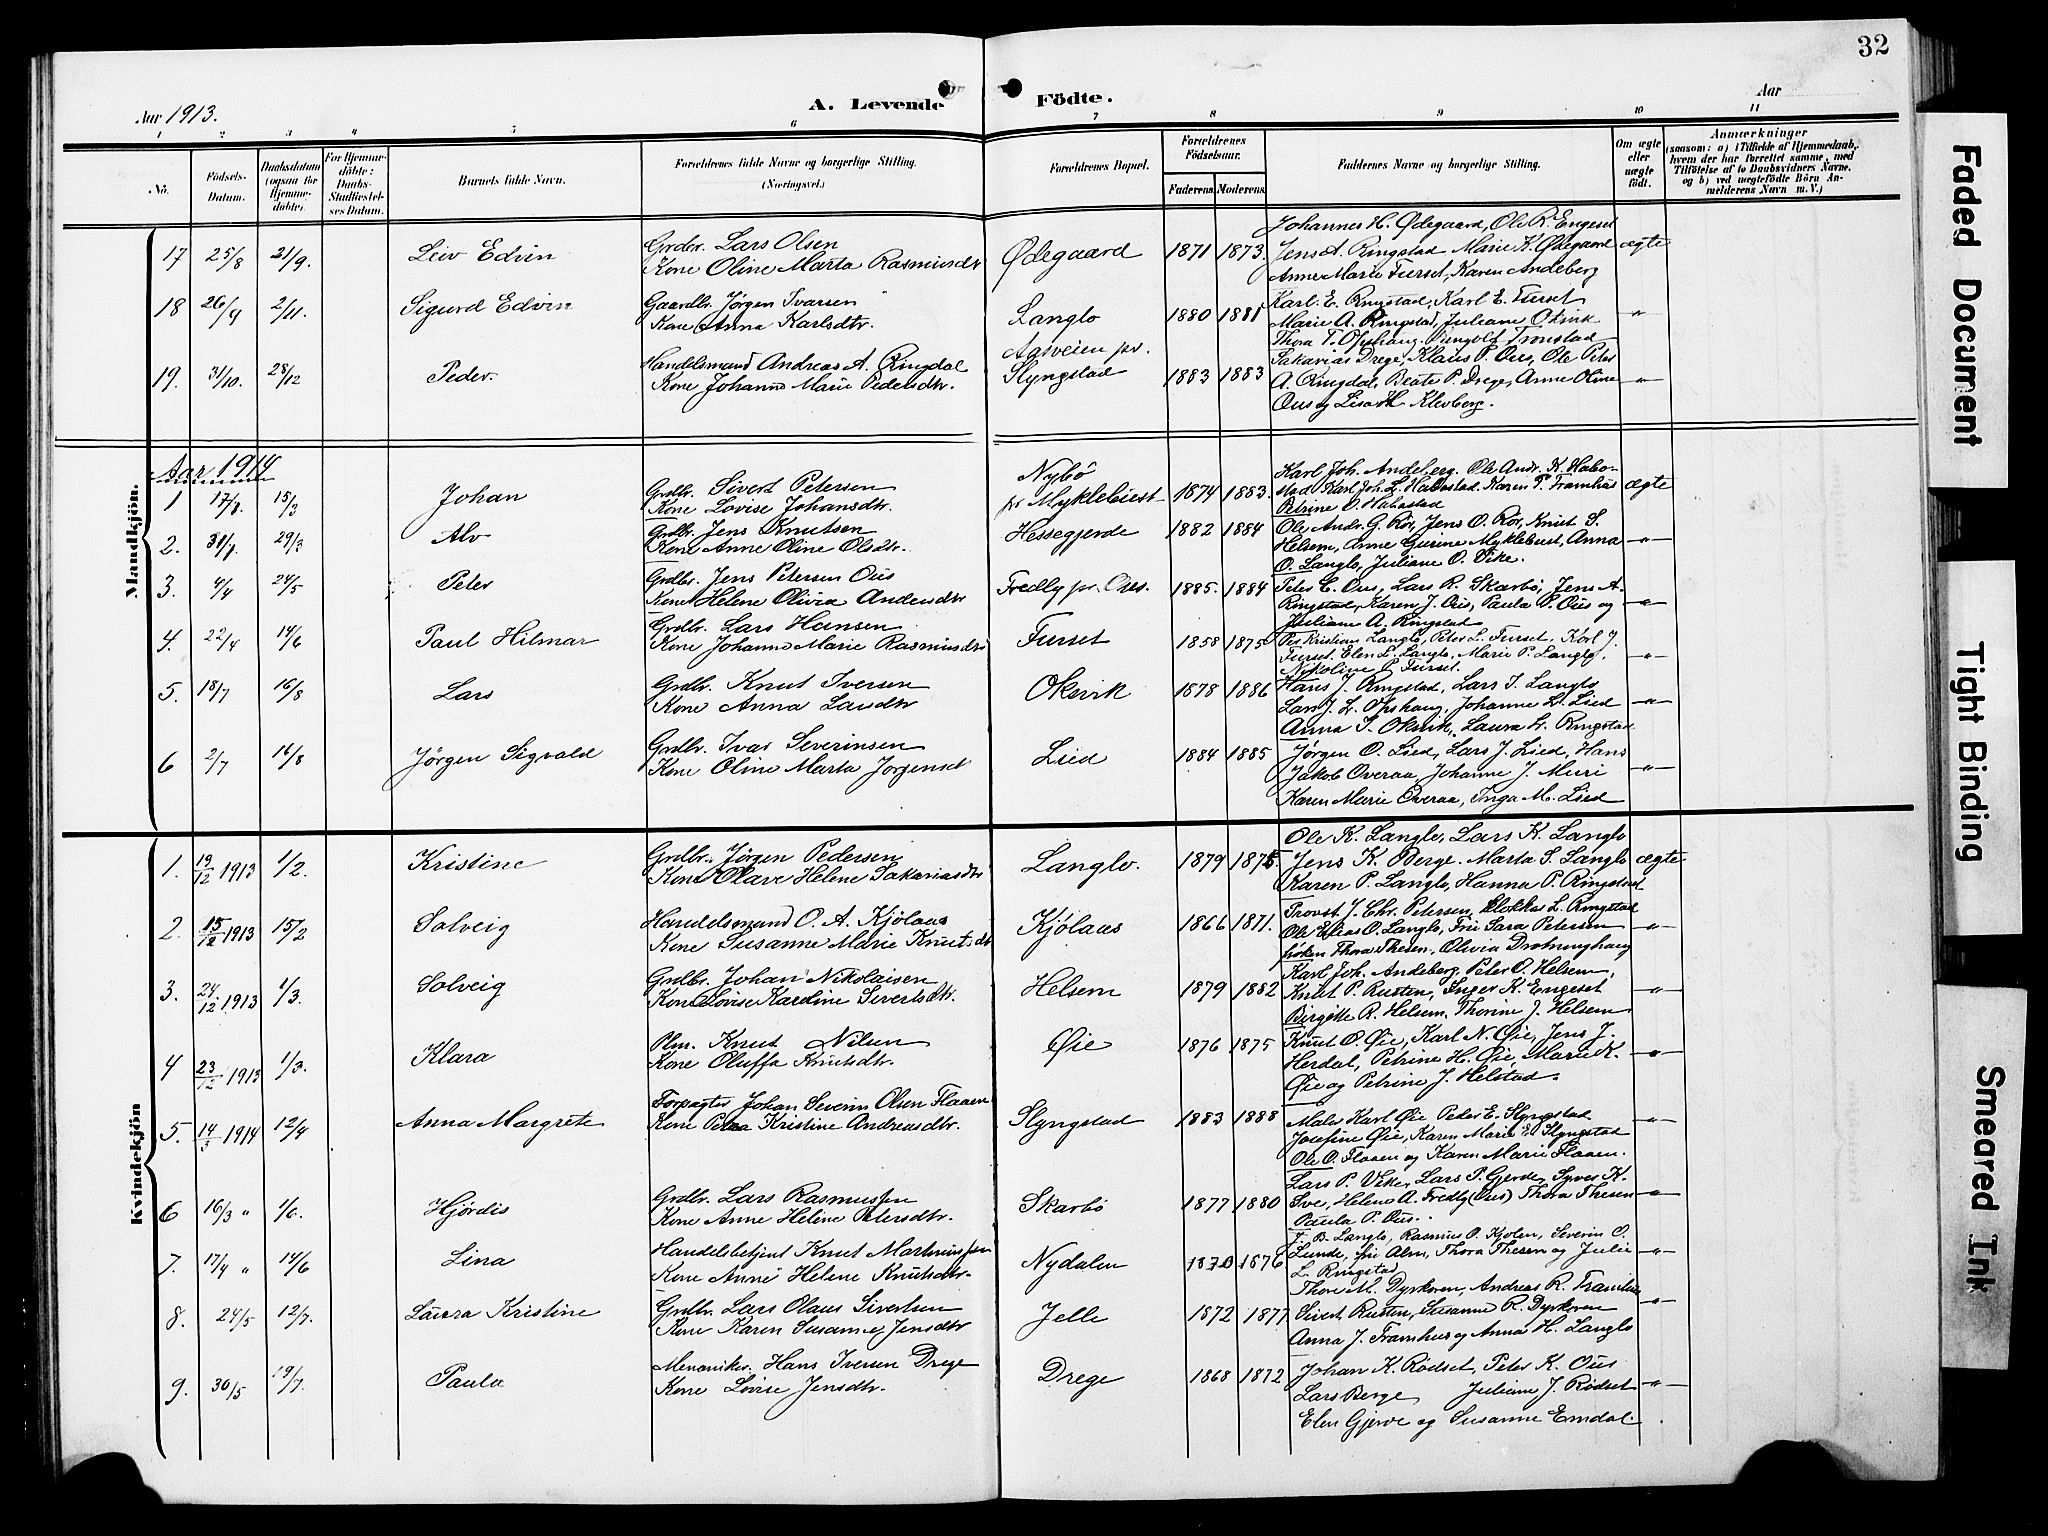 32
Aar 1913.
A. Levende Födte.
Aar
1 2 3 4 5 6 7 8 9 10 11
No. Födsels-Datum. Daabsdatum (ogsaa for Hjemme-döbte). For Hjemme-döbte: Daabs-Stadfæstelses Datum. Barnets fulde Navn. Forældrenes fulde Navne og borgerlige Stilling. (Næringsvei.) Forældrenes Bopæl. Forældrenes Födselsaar. Faderens. Moderens. Faddernes Navne og borgerlige Stilling. Om ægte eller uægte födt. Anmærkninger (saasom: a) i Tilfælde af Hjemmedaab, hvem der har forrettet samme, med Tilföielse af to Daabsvidners Navne, og b) ved uægtefödte Börn Anmelderens Navn m. V.)
Mandkjön.
Johannes H. Ødegaard, Ole R. Engeset
17 25/8 21/9. Leiv Edvin Grdbr. Lars Olsen Ødegaard 1871 1873. Jens A. Ringstad Marie K. Ødegaard ægte
Kone Oline Marta Rasmusdtr Anne Marie Furset, Karen Andeberg
18 26/9 2/11. Sigurd Edvin Gaardbr. Jørgen Ivarsen Langlo 1880 1881 Karl E. Ringstad, Karl E. Furset
Kone Anna Karlsdtr. Marie A. Ringstad, Juliane Okvik "
Thora T. Opshaug Tronstad
19. 31/10. 28/12 Peder. Handelsmand Andreas A. Ringdal Aasveien pr. Slyngstad 1883 1883 Sakarias Drege, Klaus P. Ous, Ole Peter
Kone Johanne Marie Pedersdtr. A. Ringdal, Beate P. Drege, Anne Oline "
Ous og Lisa H. Klevberg.
Aar 1914
1 15/3 Johan Grdbr. Sivert Petersen Nybö pr Myklebust 1874 1883. Karl Joh. Andeberg. Ole Andr. K. Habo-
Kone Lovise Johansdtr. stad Karl Joh. L. Habostad. Karen P. Framhus ægte
Petrine O. Habostad
2. 29/3 Alv Grdbr. Jens Knutsen Hessegjerde 1882 1884 Ole Andr. G. Rör, Jens O. Rör, Knut S.
Kone Anne Oline Olsdtr. Helsem, Anne Gurine Myklebust, Anna "
O. Langlo, Juliane O. Vike.
3. 4/4 24/5 Peter Grdbr. Jens Petersen Ous Fredly pr. Ous. 1885. 1884 Peter E. Ous, Lars R. Skarbö, Jens A.
Kone Helene Olivia Andersdtr Ringstad, Karen J. Ous, Paula P. Ous og "
Juliane A. Ringstad
4. 22/4 14/6 Paul Hilmar Grdbr. Lars Hansen Furset 1858 1875 Per Kristian Langlo, Peter L. Furset, Karl J.
Kone Johanne Marie Rasmusdtr Furset. Elen L. Langlo, Marie P. Langlo, "
Nikoline P. Furset.
5. 18/7 16/8 Lars Grdbr. Knut Iversen Okvik 1878 1886 Hans J. Ringstad, Lars I. Langlo
Kone Anna Larsdtr Lars J. L. Opshaug, Johanne L. Lied "
Anna I. Okvik, Laura L. Ringstad
6 2/7 16/8 Jörgen Sigvald Grdbr. Ivar Severinsen Lied 1884 1885 Jørgen O. Lied, Lars J. Lied, Hans
Kone Oline Marta Jørgensd Jakob Overaa, Johanne J. Muri "
Karen Marie Overaa, Inga M. Lied
Kvindekjön
Ole K. Langlo, Lars K. Langlo
1. 19/12 1913 1/2. Kristine Grdbr. Jørgen Pedersen Langlo. 1879 1875. Jens K. Berge. Marta S. Langlo ægte
Kone Olave Helene Sakariasdtr Karen P. Langlo, Hanna P. Ringstad
2. 15/12 1913 15/2 Solveig Handelsmand O. A. Kjölaas Kjólaas 1866 1871. Provst J. Chr. Petersen, Klokker L. Ringstad
Kone Susanne Marie Knutsdtr Ole Elias O. Langlo, Fru Sara Petersen "
fröken Thora Thesen, Olivia Drotninghaug
3. 24/12 1913 1/3. Solveig Grdbr. Johan Nikolaisen Helsem 1879 1882 Karl Joh. Andeberg, Peter O. Helsem,
Kone Lovise Karoline Sivertsdtr. Knut P. Rusten, Inger K. Engeset "
Birgitte R. Helsem, Thorine J. Helsem
4 23/12 1913 1/3. Klara Plm. Knut Nilsen Øie 1876 1875 Knut O. Øie, Karl N. Øie, Jens J.
Kone Oluffa Knutsdtr. Herdal, Petrine H. Øie, Marie K. "
Øie og Petrine J. Helstad.
5. 14/3 1914 12/4 Anna Margrete Forpagter Johan Severin Olsen Flaaen Slyngstad 1883 1888 Maler Karl Øie Peder E. Slyngstad
Kone Petra Kristine Andreasdtr. Josefine Øie, Karen Marie E. Slyngstad "
Ole O. Flaaen og Karen Marie Flaaen.
6 16/3 " 1/6. Hjördis Grdbr. Lars Rasmussen Skarbö 1877 1880 Lars P. Vike, Lars P. Gjerde, Syver K.
Kone Anne Helene Petersdtr. Sve, Helene A. Fredly (Ous) Thora Thesen "
Paula P. Ous.
7. 17/4 " 14/6 Lina Handelsbetjent Knut Martinussen Nydalen 1870 1876 J. B. Langlo, Rasmus O. Kjölen, Severin O.
Kone Anne Helene Knutsdtr. Lunde, fru Alm, Thora Thesen og Julie "
L. Ringstad
8. 24/5 12/7. Laura Kristine Grdbr. Lars Olaus Sivertsen Jelle 1872 1877 Thore M. Dyrkoren, Andreas R. Framhus
Kone Karen Susanne Jensdtr Sivert Rusten, Susanne R. Dyrkoren "
Anna J. Framhus og Anna H. Langlo
9. 30/5 19/7. Paula Mekaniker. Hans Iversen Drege Drege 1868 1872 Johan K. Rödset, Peter K. Ous
Kone Lovise Jensdtr. Lars Berge, Juliane J. Rödset "
Elen Gjerde og Susanne Emdal.
Faded Document
Tight Binding
Smeared Ink